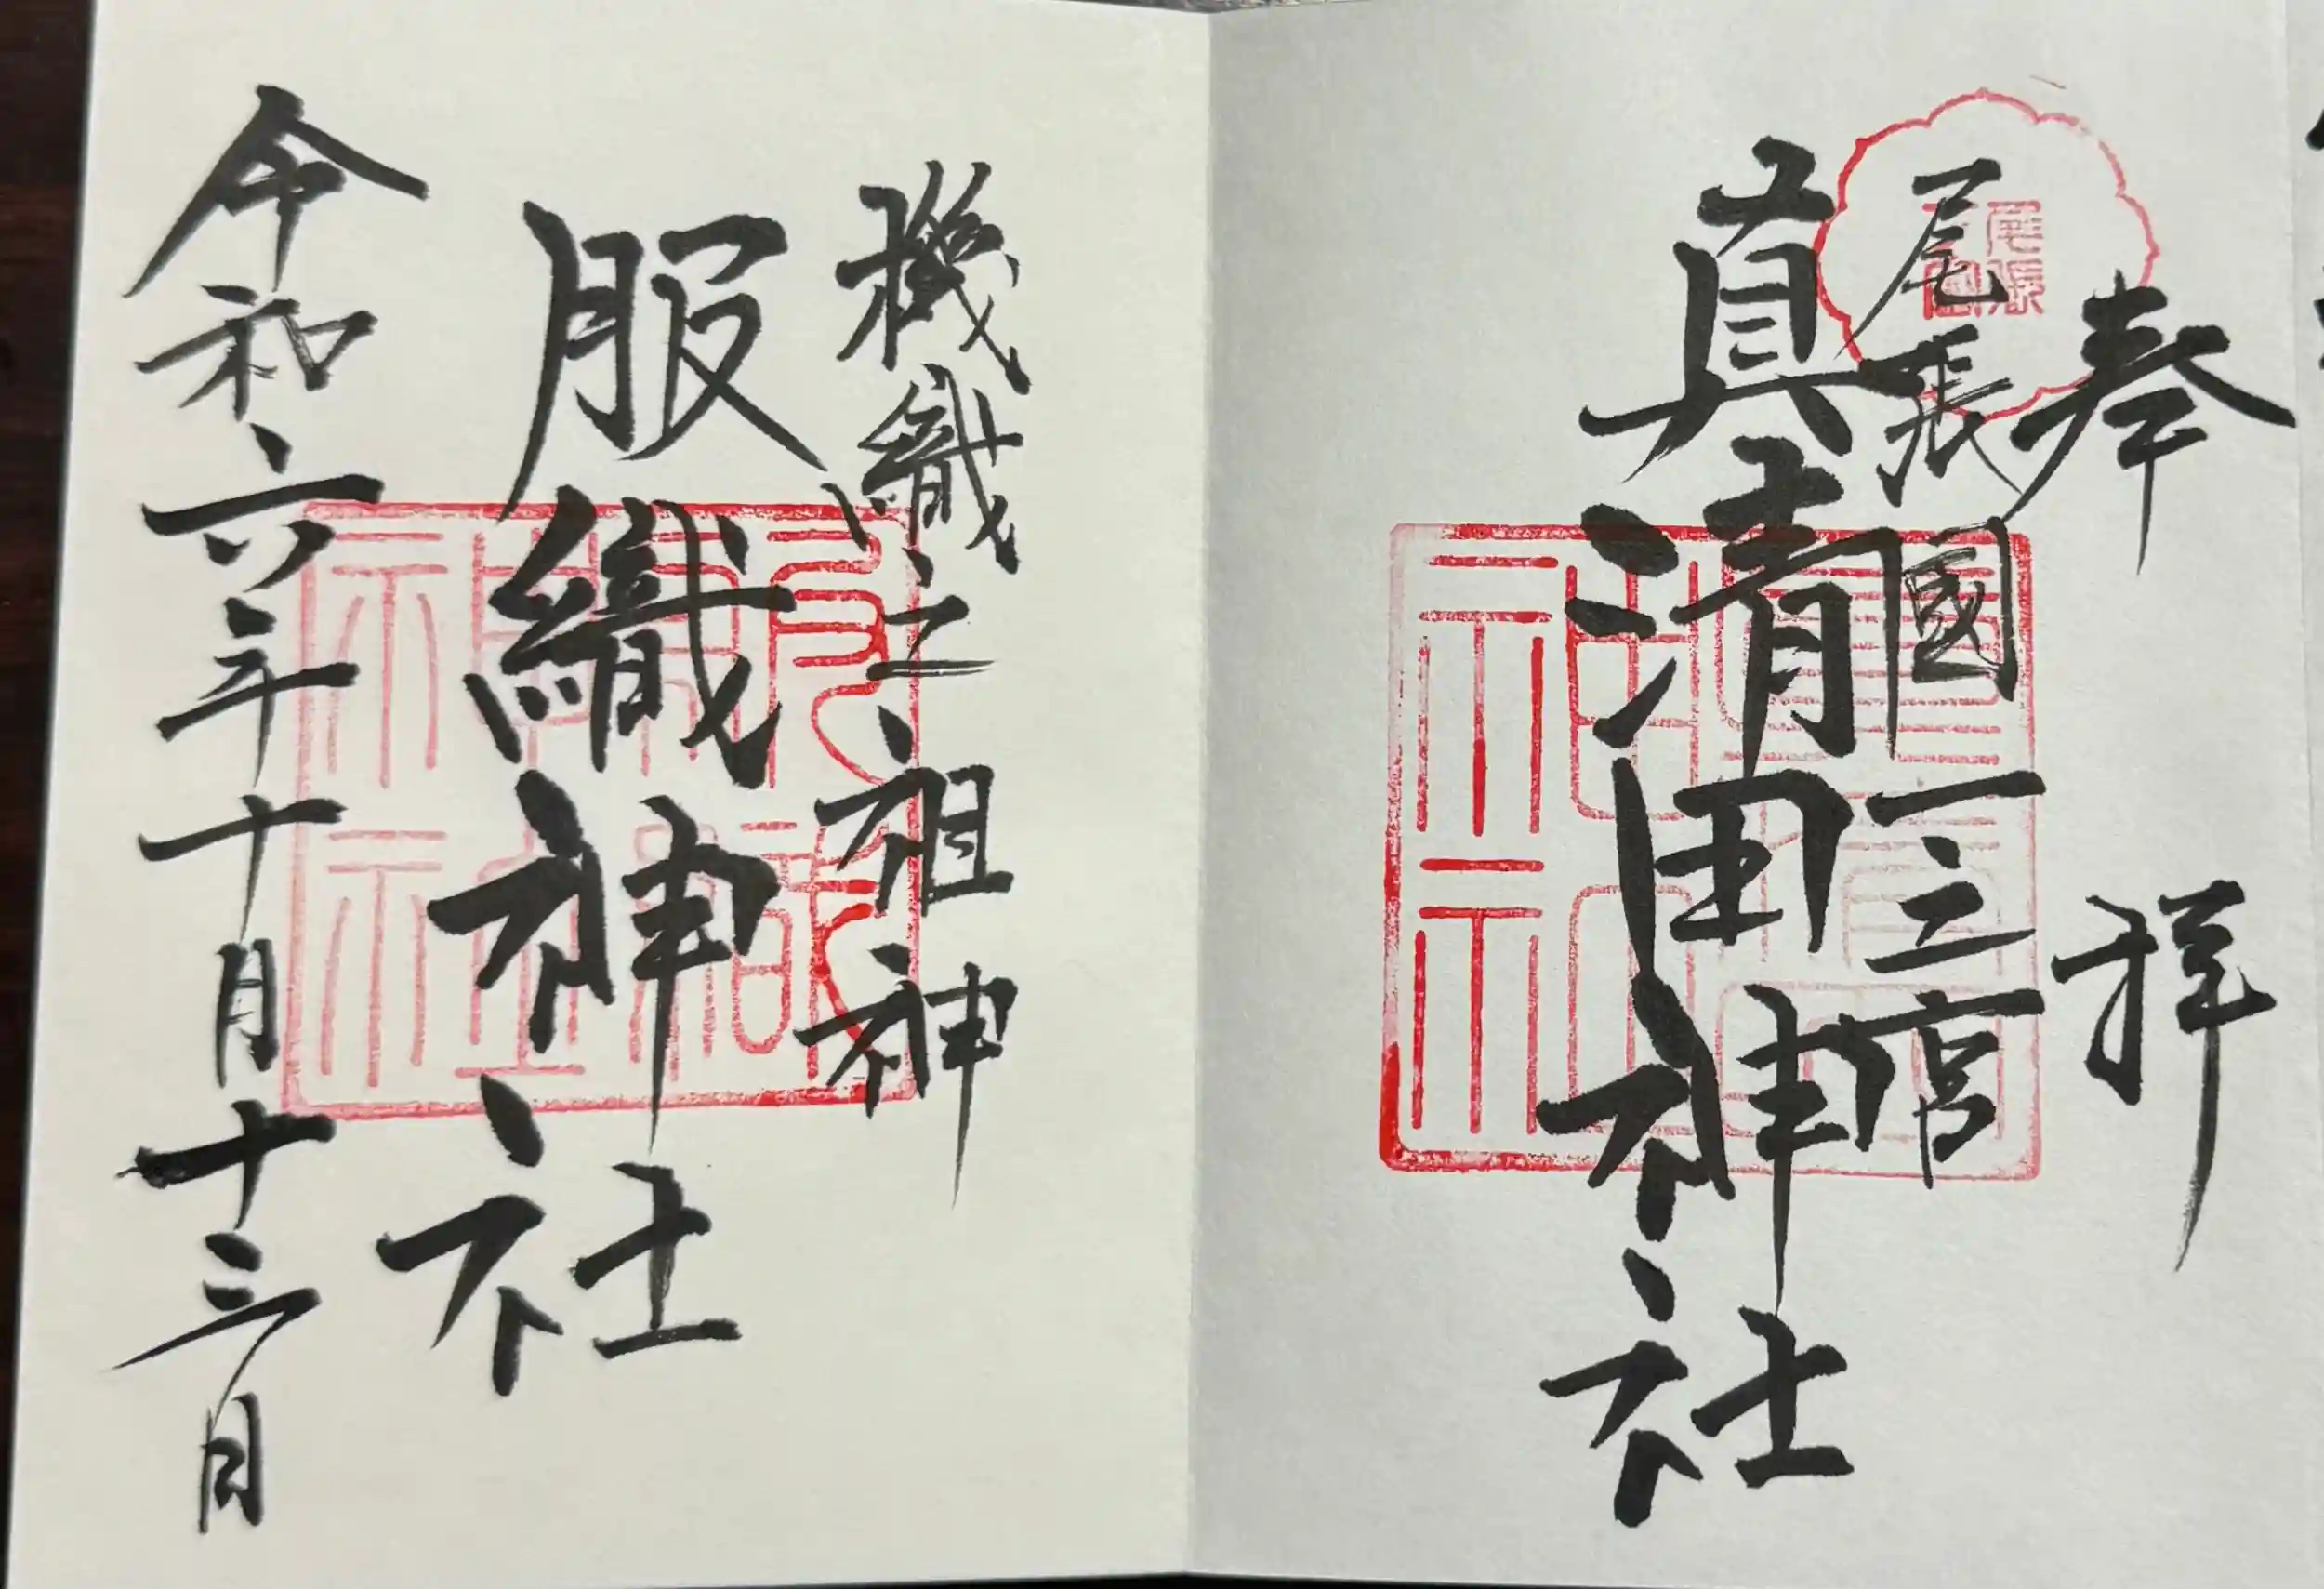 奉拝
尾張國一之宮
真清田神社
機織之祖神
服織神社
令和六年十月十三日